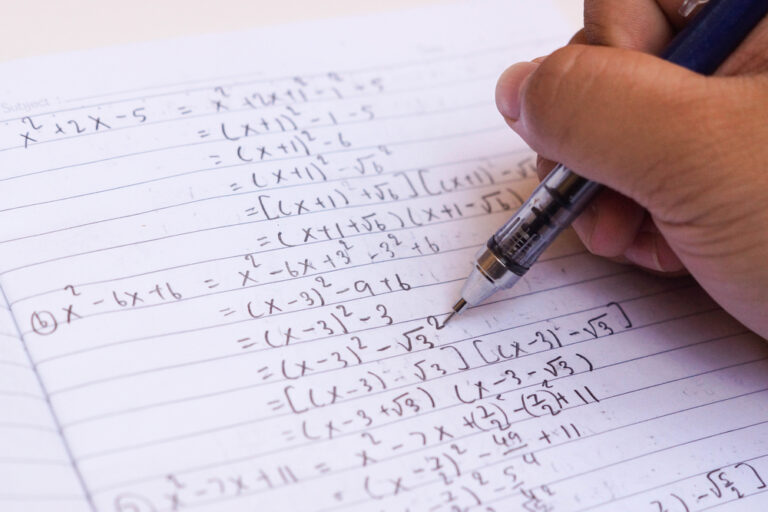 Subject :
x² + 2x - 5 = x² + 2x + 1² - 1² - 5
= (x+1)² - 1 - 5
= (x+1)² - 6
= (x+1)² - √6²
= [(x+1) + √6] [(x+1) - √6]
= (x+1+√6) (x+1-√6)
(b) x² - 6x + 6 = x² - 6x + 3² - 3² + 6
= (x-3)² - 9 + 6
= (x-3)² - 3
= (x-3)² - √3²
= [(x-3) - √3] [(x-3) - √3]
= (x-3+√3) (x-3-√3)
x² - 7x + 11 = x² - 7x + (7/2)² - (7/2)² + 11
= (x - 7/2)² - 49/4 + 11
- 7/2)² - 5/4